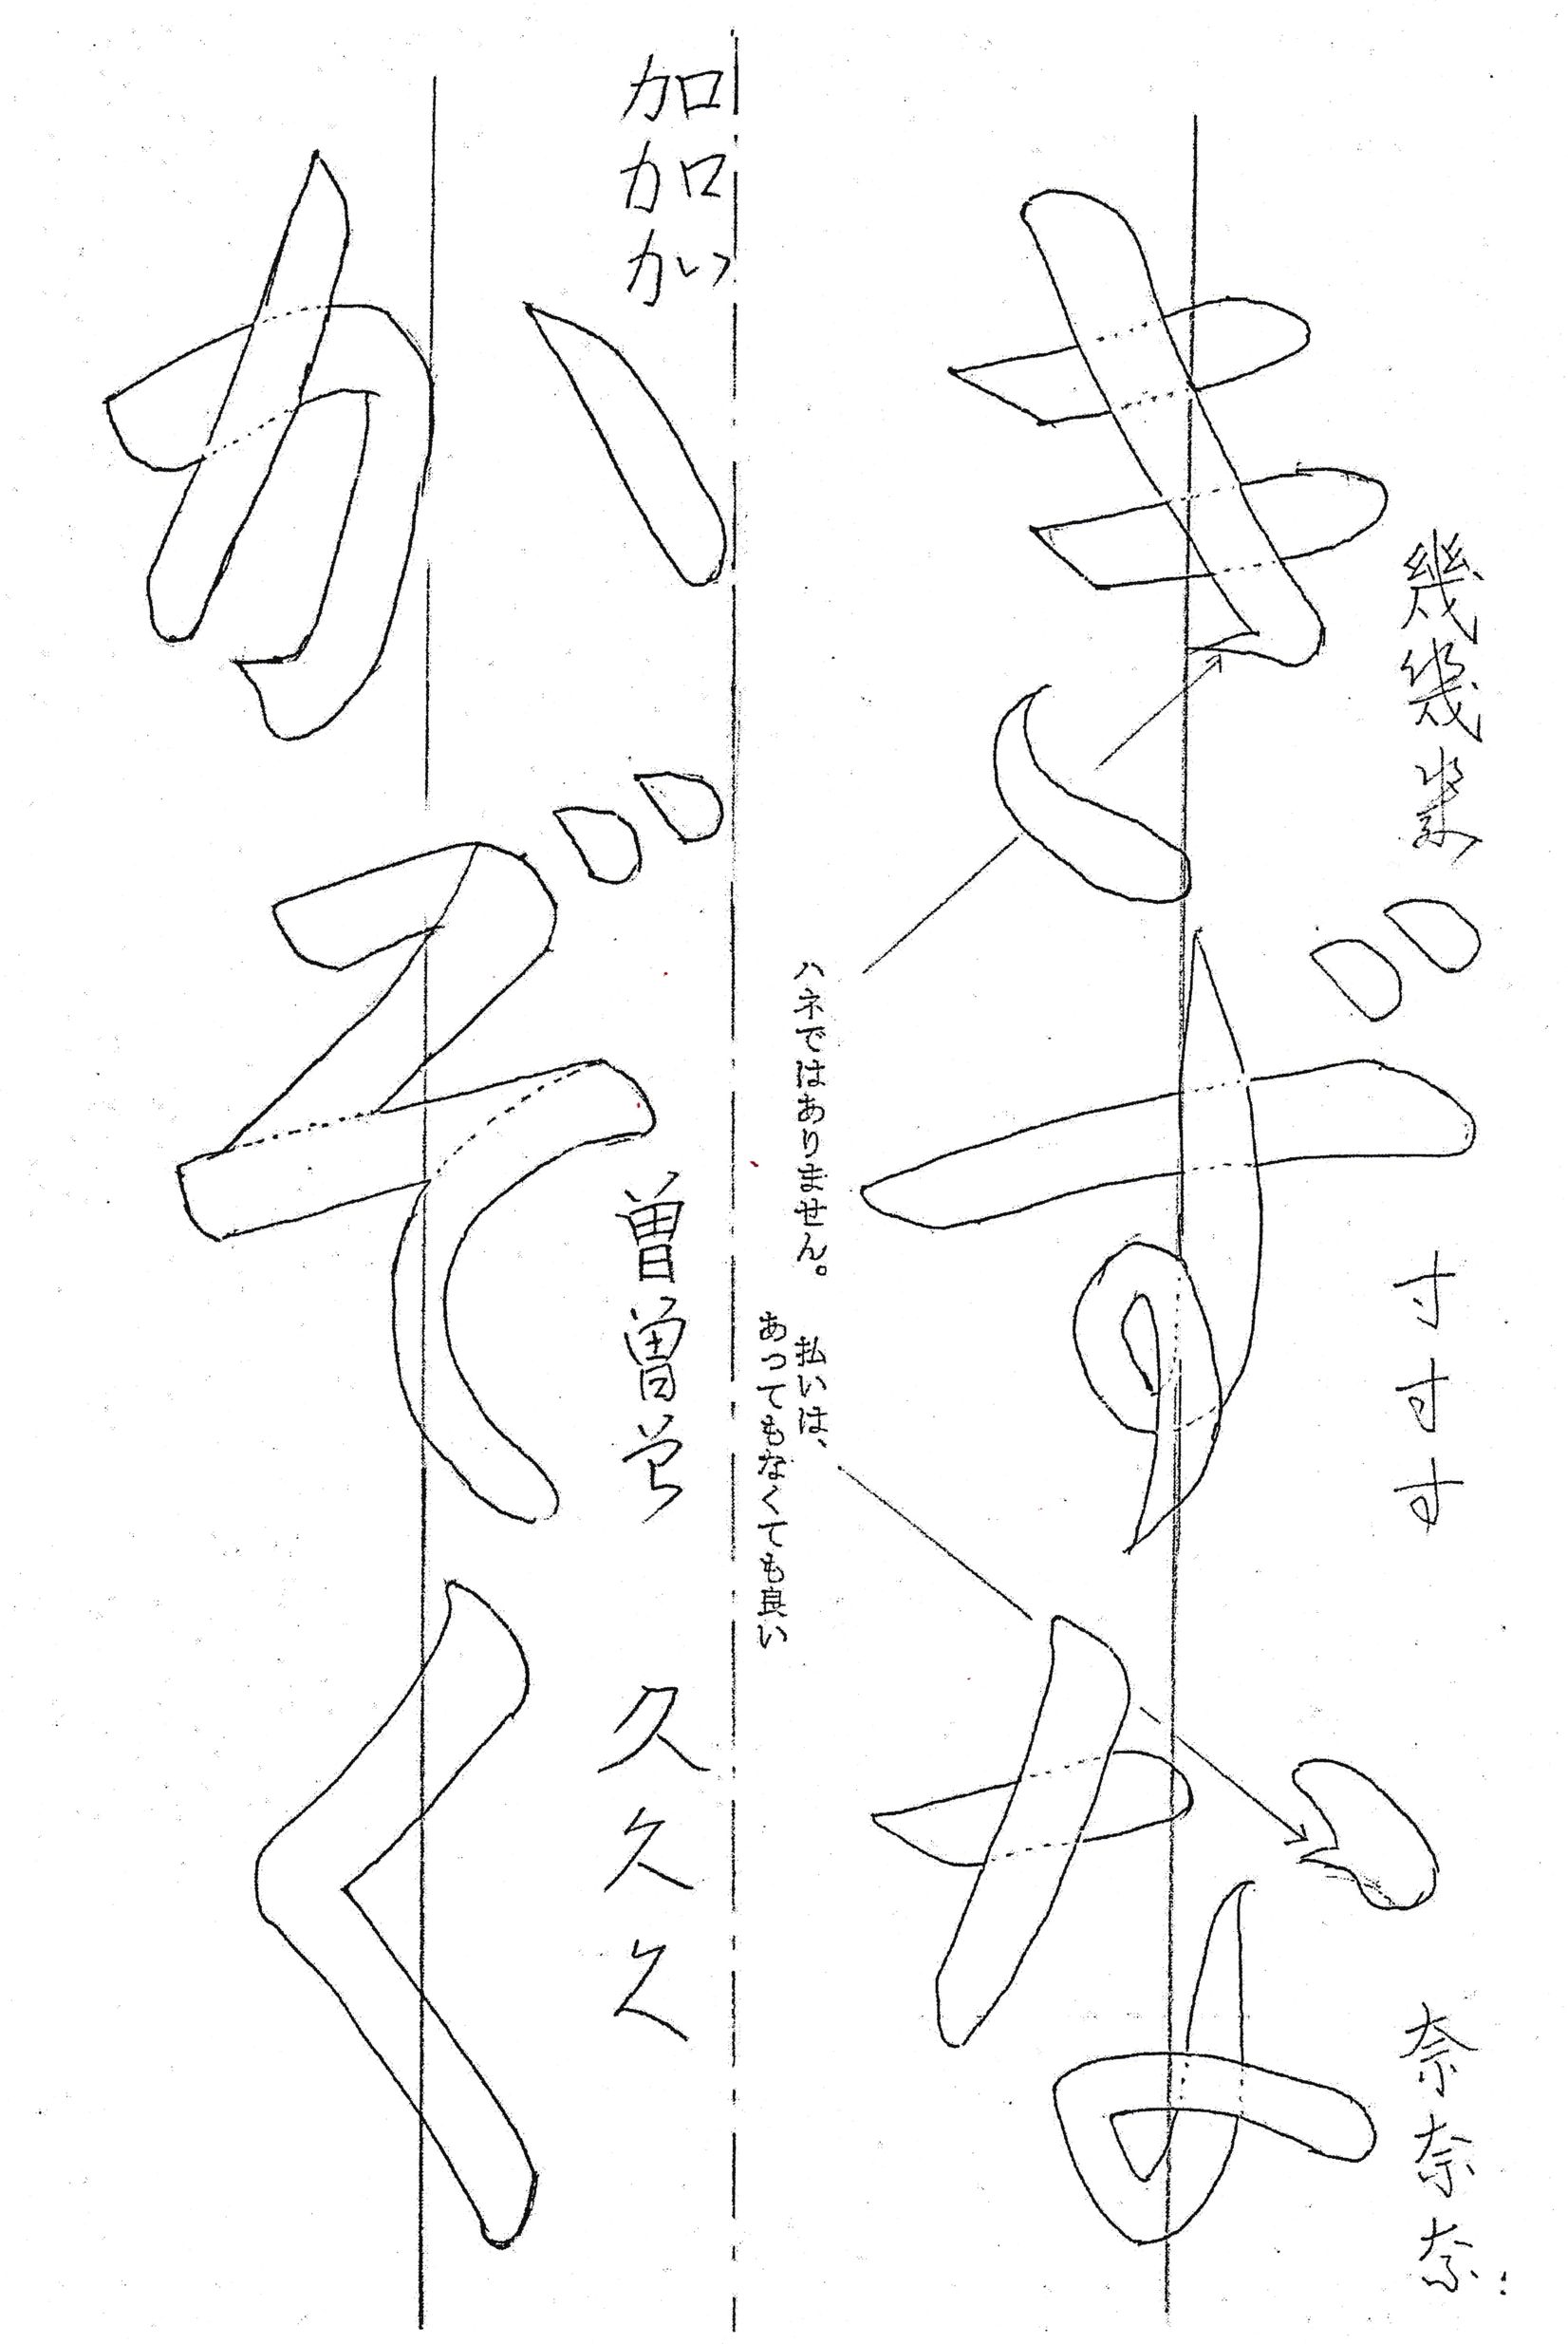 きずな
幾幾𛀸
寸寸す
奈奈奈
ハネではありません。
払いは、
あってもなくても良い
かぞく
加加か
曽曽そ
久久久